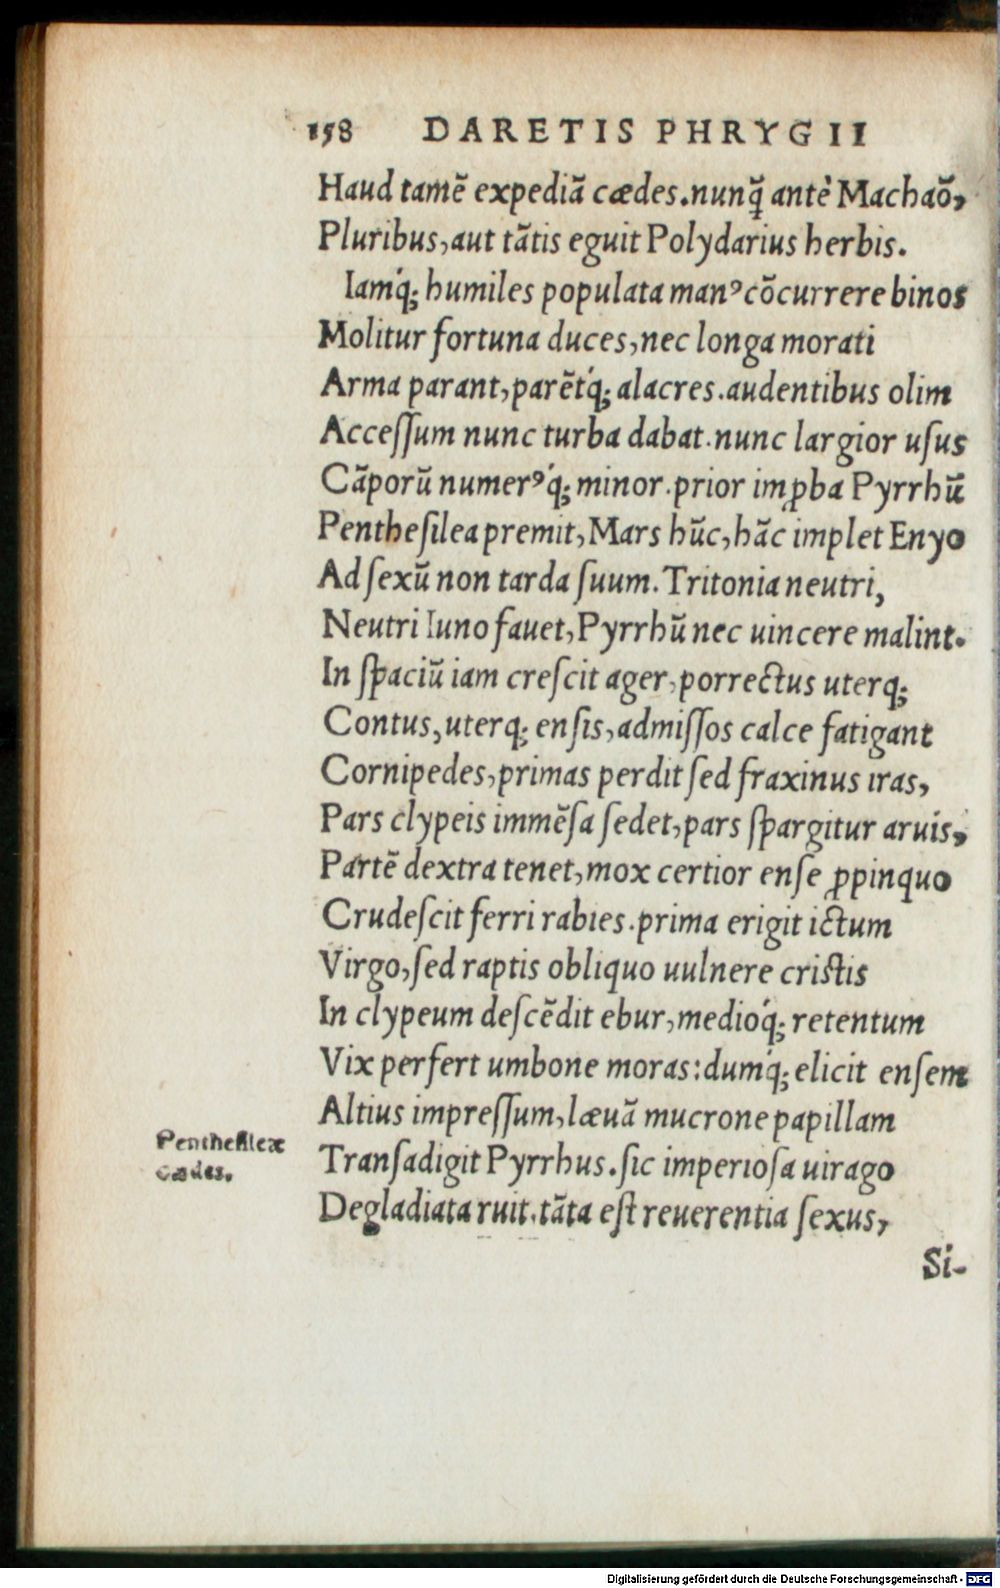 158 DARETIS PHRYGII
Haud tamē expediā cædes. nunq̄ʒ antè Machaō,
Pluribus, aut tātis eguit Polydarius herbis.
Iamq́; humiles populata manꝰ cōcurrere binos
Molitur fortuna duces, nec longa morati
Arma parant, parētq́; alacres. audentibus olim
Acceſſum nunc turba dabat. nunc largior uſus
Cāporū numerꝰq́; minor. prior imꝓba Pyrrhū
Pentheſilea premit, Mars hūc, hāc implet Enyo
Ad ſexū non tarda ſuum. Tritonia neutri,
Neutri Iuno fauet, Pyrrhū nec uincere malint.
In ſpaciū iam creſcit ager, porrectus uterq;
Contus, uterq; enſis, admiſſos calce fatigant
Cornipedes, primas perdit ſed fraxinus iras,
Pars clypeis immēſa ſedet, pars ſpargitur aruis,
Partē dextra tenet, mox certior enſe ꝓpinquo
Crudeſcit ferri rabies. prima erigit ictum
Virgo, ſed raptis obliquo uulnere criſtis
In clypeum deſcēdit ebur, medioq́; retentum
Vix perfert umbone moras: dumq́; elicit enſem
Altius impreſſum, læuā mucrone papillam
Pentheſileæ
cædes.
Tranſadigit Pyrrhus. ſic imperioſa uirago
Degladiata ruit. tāta eſt reuerentia ſexus,
Si-
Digitalisierung gefördert durch die Deutsche Forschungsgemeinschaft - DFG